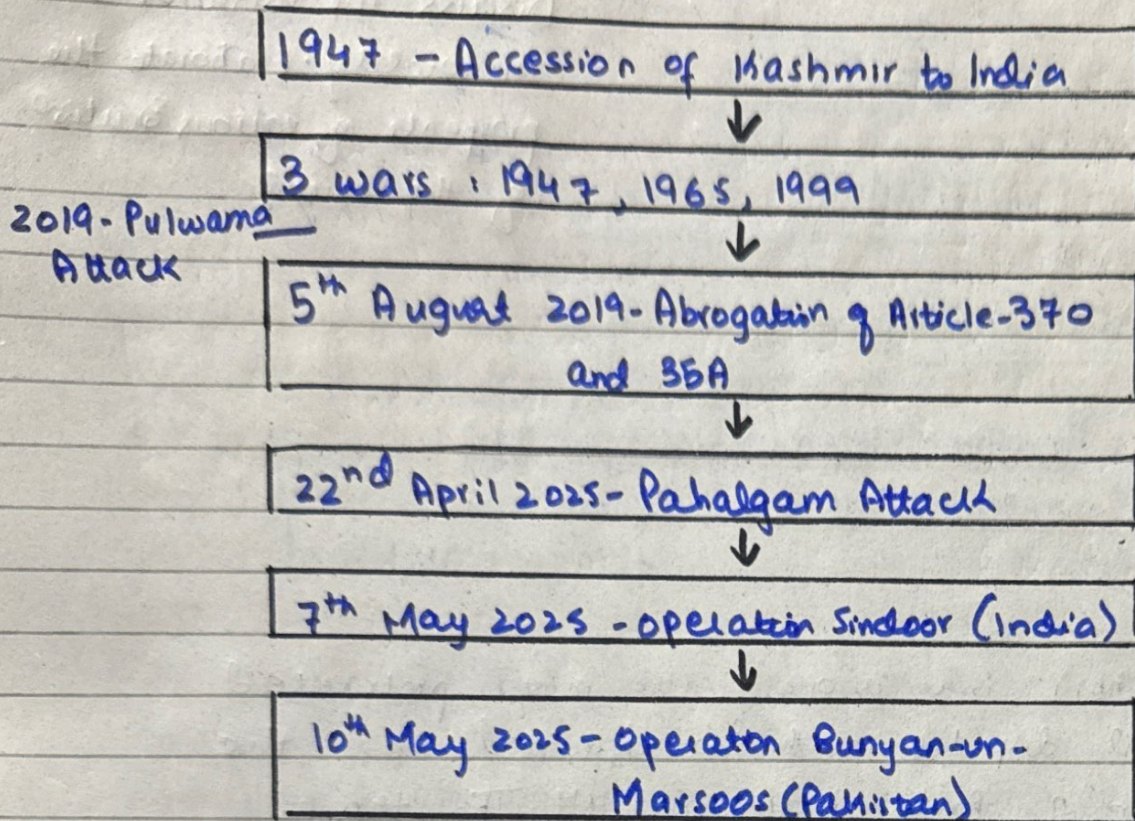 1947 - Accession of Kashmir to India
3 wars : 1947, 1965, 1999
2019- Pulwama
Attack
5th August 2019- Abrogation of Article-370
and 35A
22nd April 2025- Pahalgam Attack
7th May 2025 - operation Sindoor (India)
10th May 2025 - Operaton Bunyan-un-
Marsoos (Pakistan)